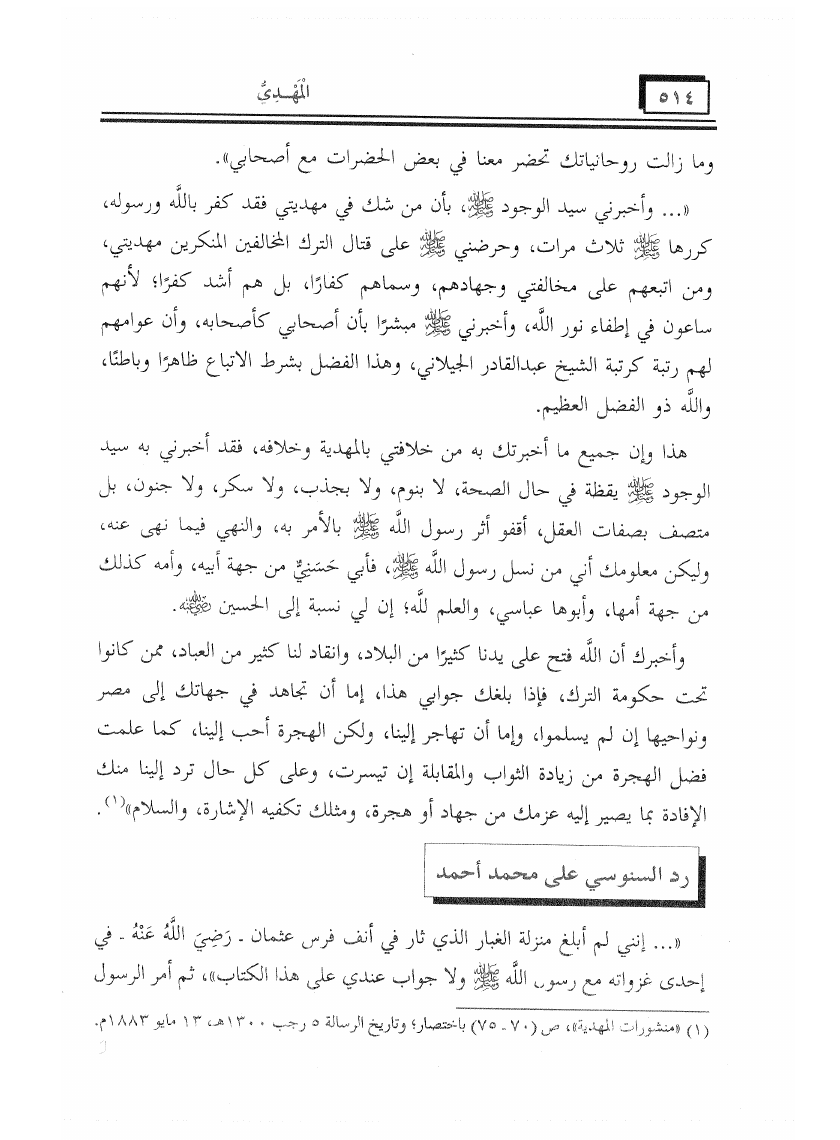 ٥١٤
الْمَهْـدِيُّ
وما زالت روحانياتك تحضر معنا في بعض الحضرات مع أصحابي».
«... وأخبرني سيد الوجود ﷺ، بأن من شك في مهديتي فقد كفر باللَّه ورسوله،
كررها ﷺ ثلاث مرات، وحرضني ﷺ على قتال الترك المخالفين المنكرين مهديتي،
ومن اتبعهم على مخالفتي وجهادهم، وسماهم كفارًا، بل هم أشد كفرًا؛ لأنهم
ساعون في إطفاء نور اللَّه، وأخبرني ﷺ مبشرًا بأن أصحابي كأصحابه، وأن عوامهم
لهم رتبة كرتبة الشيخ عبدالقادر الجيلاني، وهذا الفضل بشرط الاتباع ظاهرًا وباطنًا،
واللَّه ذو الفضل العظيم.
هذا وإن جميع ما أخبرتك به من خلافتي بالمهدية وخلافه، فقد أخبرني به سيد
الوجود ﷺ يقظة في حال الصحة، لا بنوم، ولا بجذب، ولا سكر، ولا جنون، بل
متصف بصفات العقل، أقفو أثر رسول اللَّه ﷺ بالأمر به، والنهي فيما نهى عنه،
وليكن معلومك أني من نسل رسول اللَّه ﷺ، فأبي حَسَنِيٌّ من جهة أبيه، وأمه كذلك
من جهة أمها، وأبوها عباسي، والعلم للَّه؛ إن لي نسبة إلى الحسين رضي الله عنه.
وأخبرك أن اللَّه فتح على يدنا كثيرًا من البلاد، وانقاد لنا كثير من العباد، ممن كانوا
تحت حكومة الترك، فإذا بلغك جوابي هذا، إما أن تجاهد في جهاتك إلى مصر
ونواحيها إن لم يسلموا، وإما أن تهاجر إلينا، ولكن الهجرة أحب إلينا، كما علمت
فضل الهجرة من زيادة الثواب والمقابلة إن تيسرت، وعلى كل حال ترد إلينا منك
الإفادة بما يصير إليه عزمك من جهاد أو هجرة، ومثلك تكفيه الإشارة، والسلام»(١).
رد السنوسي على محمد أحمد
«... إنني لم أبلغ منزلة الغبار الذي ثار في أنف فرس عثمان ـ رَضِيَ اللَّهُ عَنْهُ ـ في
إحدى غزواته مع رسول اللَّه ﷺ ولا جواب عندي على هذا الكتاب»، ثم أمر الرسول
(١) «منشورات المهدية»، ص (٧٠ـ ٧٥) باختصار؛ وتاريخ الرسالة ٥ رجب ١٣٠٠هـ، ١٣ مايو ١٨٨٣م.